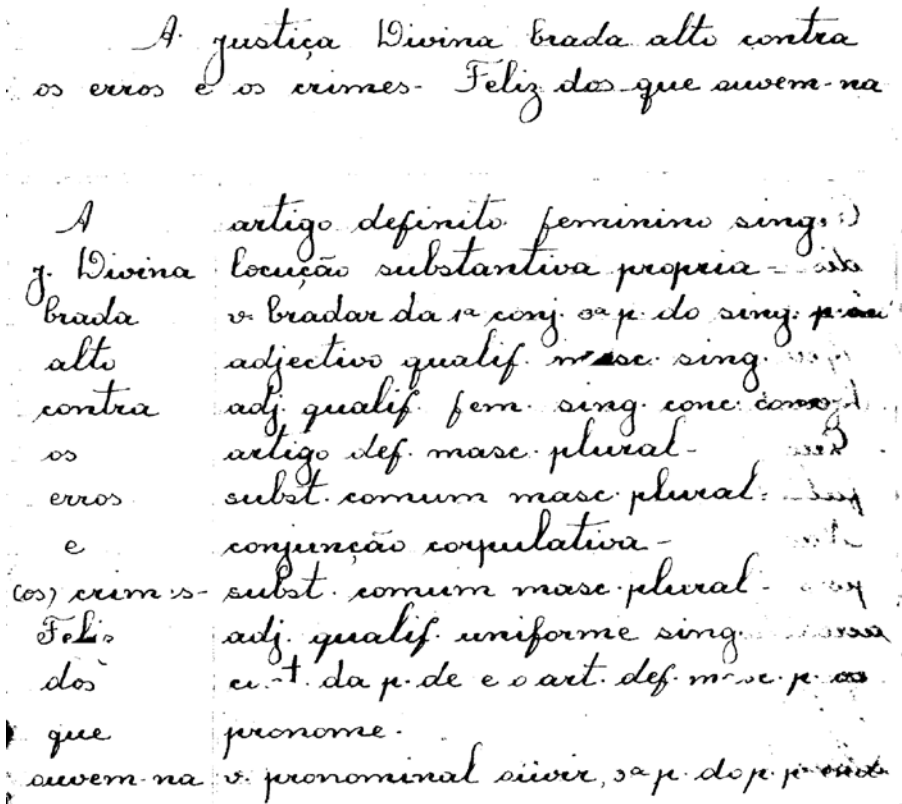 A justiça Divina brada alto contra
os erros e os crimes- Feliz dos que auvem-na
A artigo definito feminino sing.
j. Divina locução substantiva propria -
brada v. bradar da 1ª conj. 3ª p. do sing.
alto adjectivo qualif. masc. sing.
contra adj. qualif. fem. sing. conc.
os artigo def. masc. plural-
erros subst. comum masc. plural.
e conjunção corpulativa-
(os) crimes- subst. comum masc. plural-
Felis adj. qualif. uniforme sing.
dos da p. de e o art. def. masc. p.
que pronome.
auvem-na v. pronominal oüvir, 3ª p. do p. p.